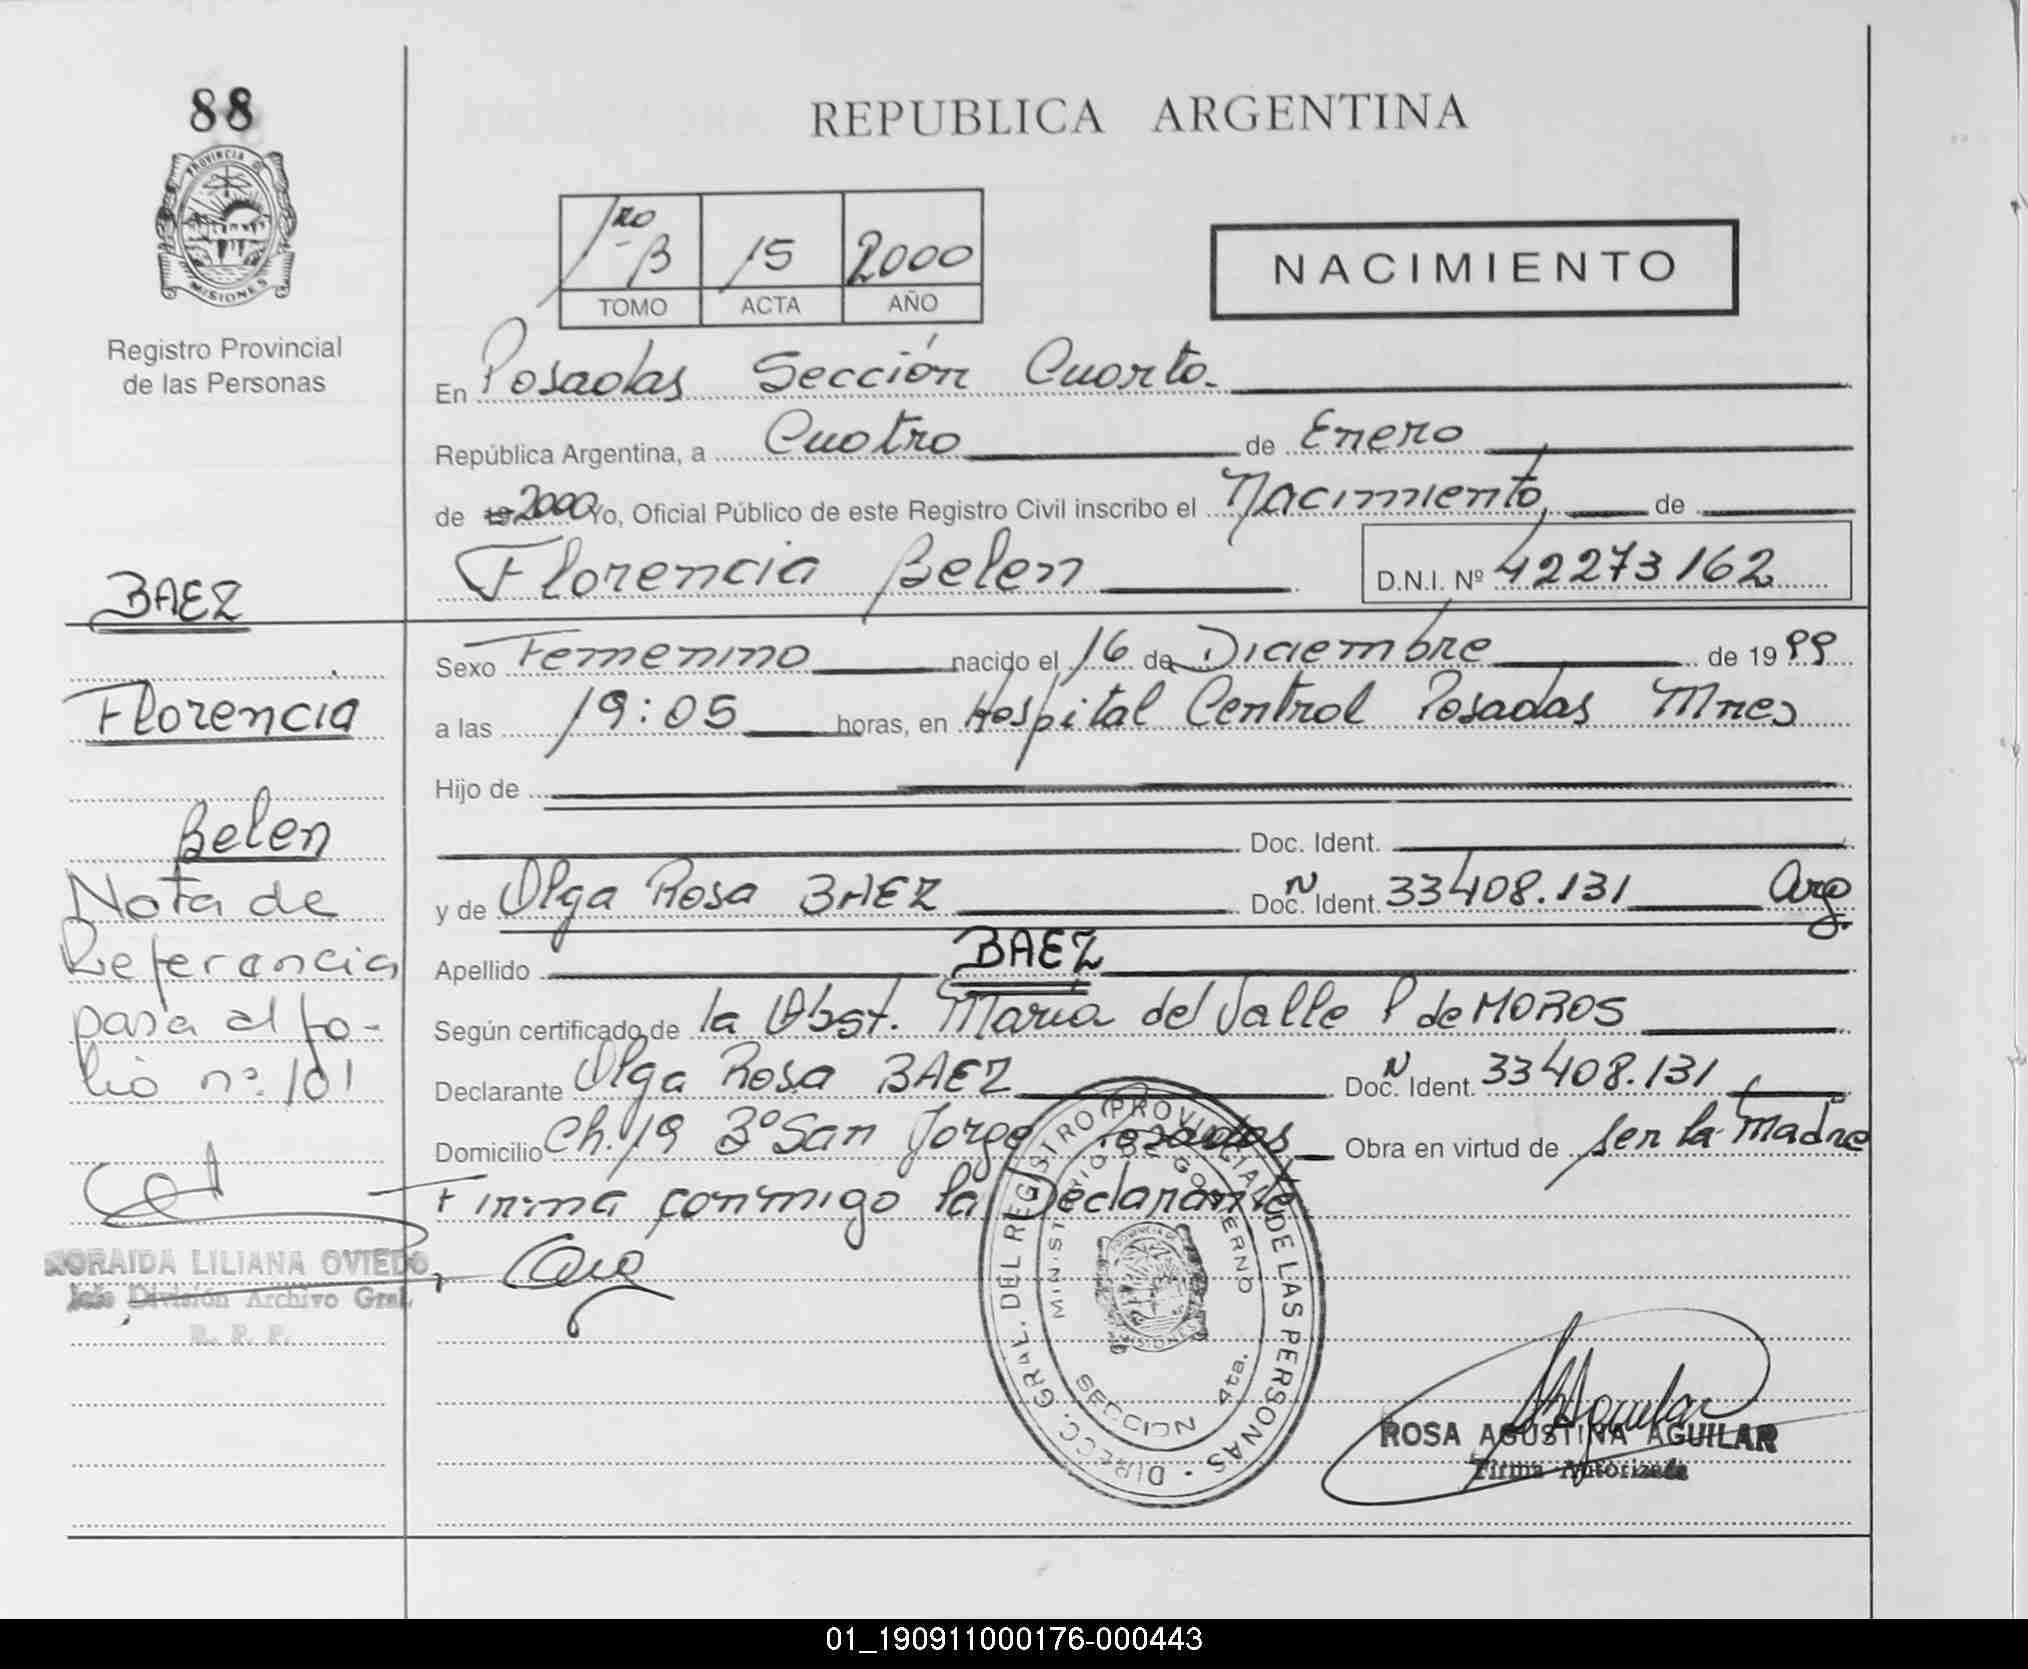 88
REPUBLICA ARGENTINA
PROVINCIA D
MISIONES
Registro Provincial
de las Personas
1ro B 15 2000
TOMO ACTA AÑO
NACIMIENTO
En Posadas Sección Cuarta.
República Argentina, a Cuatro de Enero
de 19 2000 Yo, Oficial Público de este Registro Civil inscribo el Nacimiento, de
Florencia Belen D.N.I. Nº 42273162
BAEZ
Florencia
Belen
Nota de
Referencia
para el fo-
lio nº. 101
NORAIDA LILIANA OVIEDO
Jefe División Archivo Gral.
R. P. P.
Sexo Femenino nacido el 16 de Diciembre de 1999
a las 19:05 horas, en Hospital Central Posadas Mnes
Hijo de
Doc. Ident.
y de Olga Rosa BAEZ Doc. N Ident. 33408.131 Arg.
Apellido BAEZ
Según certificado de la Obst. María del Valle P de MOROS
Declarante Olga Rosa BAEZ Doc. N Ident. 33408.131
Domicilio Ch. 19 Bº San Jorge Posadas Obra en virtud de ser la madre
Firma conmigo la Declarante
DIRECC. GRAL. DEL REGISTRO PROVINCIAL DE LAS PERSONAS
MINISTERIO DE GOBIERNO
SECCION 4ta.
ROSA AGUSTINA AGUILAR
Firma Autorizada
01_190911000176-000443